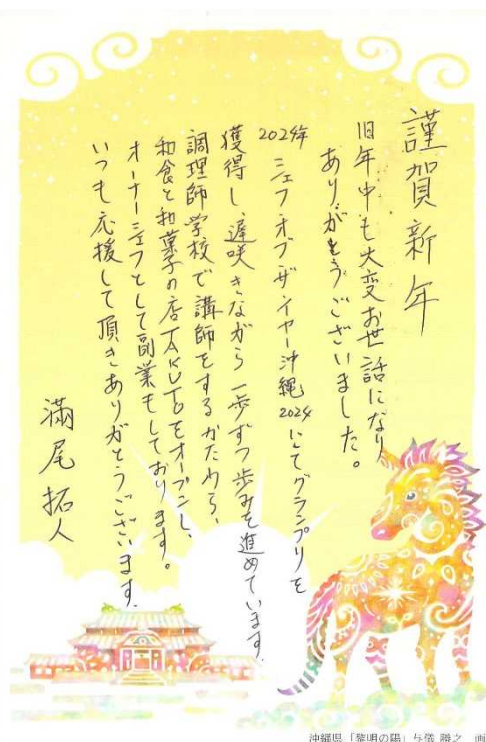 謹賀新年
旧年中も大変お世話になり、
ありがとうございました。
2024年 シェフオブザイヤー沖縄2024にてグランプリを
獲得し遅咲きながら一歩ずつ歩みを進めています。
調理師学校で講師をするかたわら、
和食と和菓子の店TAKUTOをオープンし、
オーナーシェフとして副業もしております。
いつも応援して頂きありがとうございます。
満尾拓人
沖縄県「黎明の陽」与儀 勝之 画